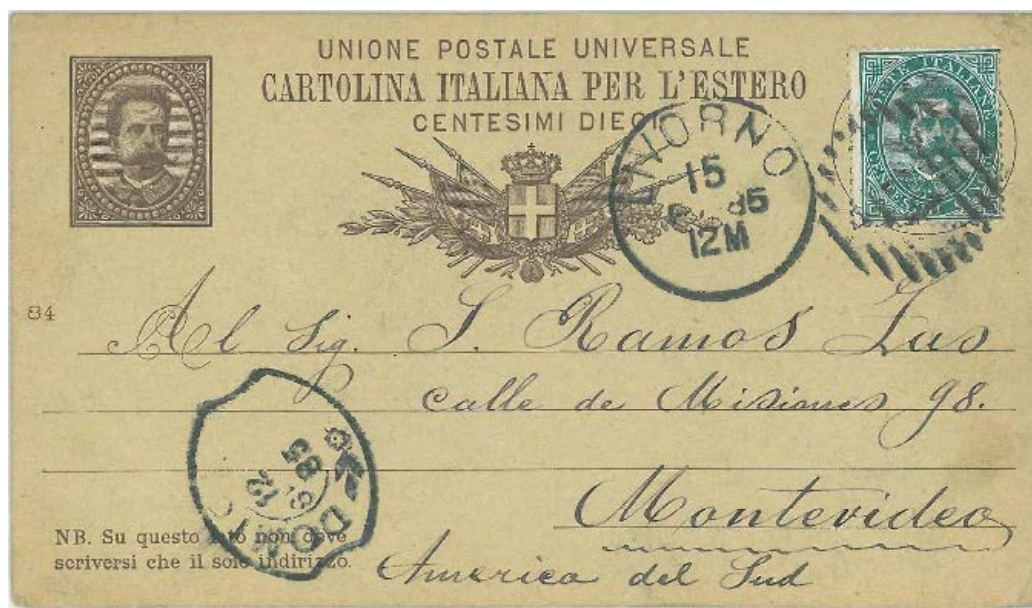 UNIONE POSTALE UNIVERSALE
CARTOLINA ITALIANA PER L'ESTERO
CENTESIMI DIECI
POSTE ITALIANE
LIVORNO
15
85
12M
84
Al Sig. J. Ramos
calle de Misiones 98.
Montevideo
America del Sud
12
8
85
NB. Su questo lato non deve
scriversi che il solo indirizzo.